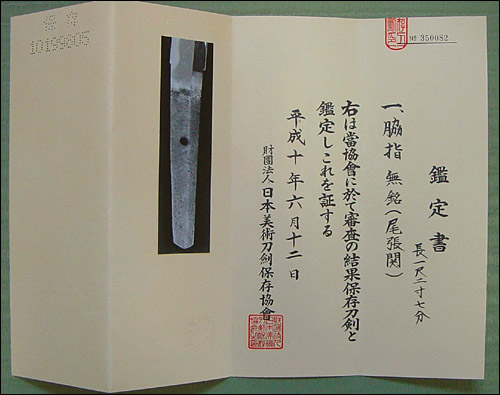 鑑定書
長一尺二寸七分
一、脇指 無銘(尾張関)
右は當協會に於て審査の結果保存刀剣と
鑑定しこれを証する
平成十年六月十二日
財團法人日本美術刀剣保存協會
№ 350082
保存
10199805